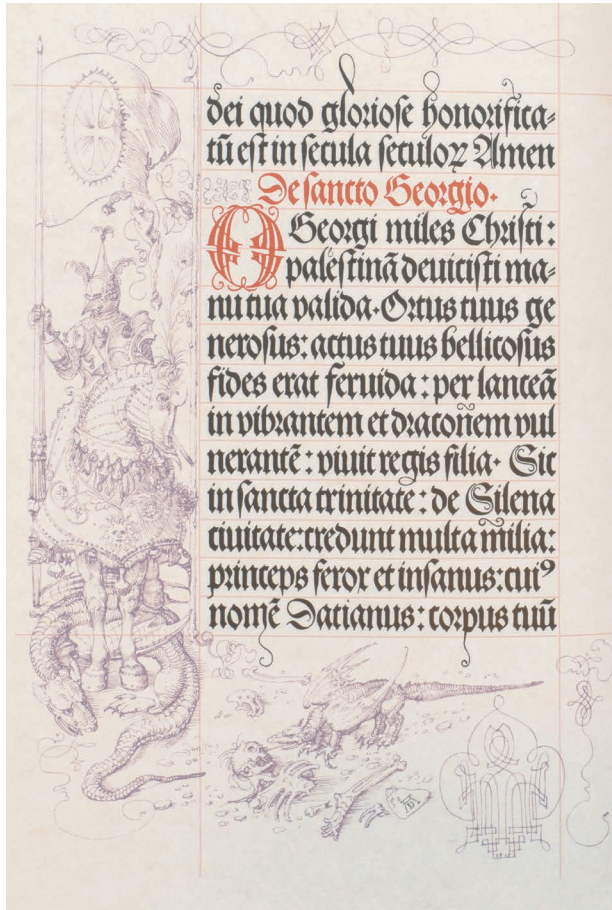 dei quod gloriose honorifica⸗
tū est in secula seculoꝝ Amen
De sancto Georgio.
O Georgi miles Christi :
palestinā deuicisti ma⸗
nu tua valida. Ortus tuus ge
nerosus: actus tuus bellicosus
fides erat feruida : per lanceā
in vibrantem et draconem vul
nerantē : viuit regis filia. Sic
in sancta trinitate : de Silena
ciuitate: credunt multa milia:
princeps ferox et insanus: cuiꝰ
nomē Datianus: corpus tuū